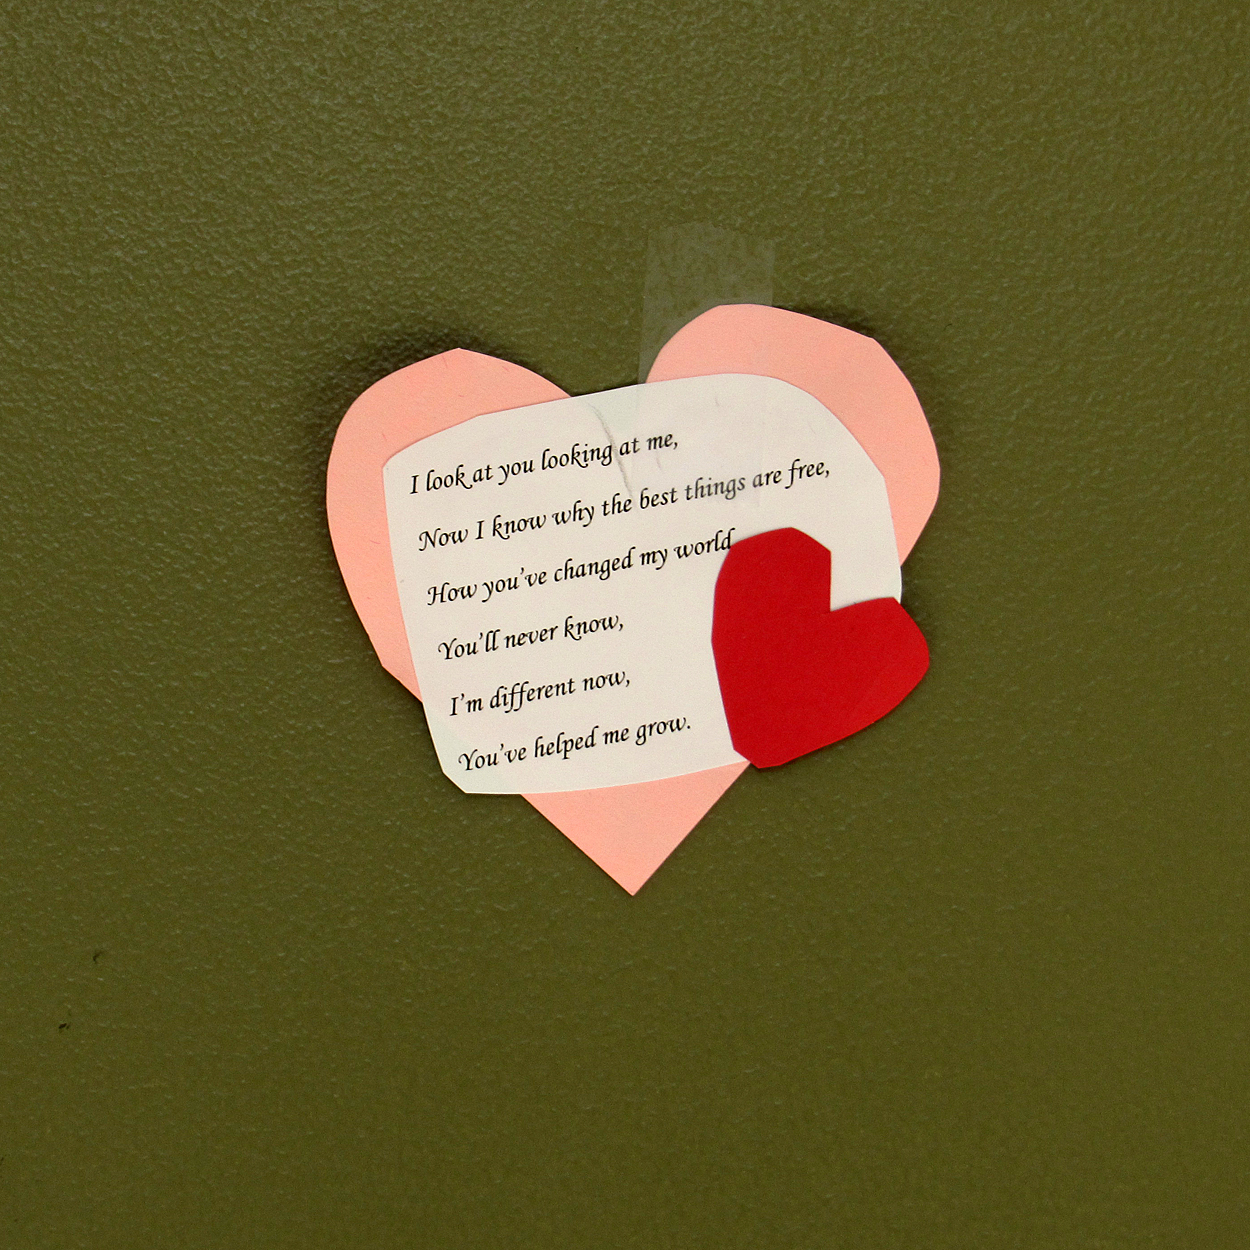 I look at you looking at me,
Now I know why the best things are free,
How you've changed my world
You'll never know,
I'm different now,
You've helped me grow.